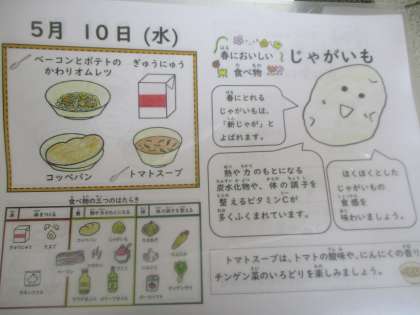 5月 10日(水)
ベーコンとポテトの
かわりオムレツ
ぎゅうにゅう
コッペパン
トマトスープ
食べ物の三つのはたらき
春においしい
食べ物
じゃがいも
春にとれる
じゃがいもは、
「新じゃが」と
よばれます。
熱や力のもとになる
炭水化物や、体の調子を
整えるビタミンCが
多くふくまれています。
ほくほくとした
じゃがいもの
食感を
味わいましょう。
トマトスープは、トマトの酸味や、にんにくの香り
チンゲン菜のいろどりを楽しみましょう。